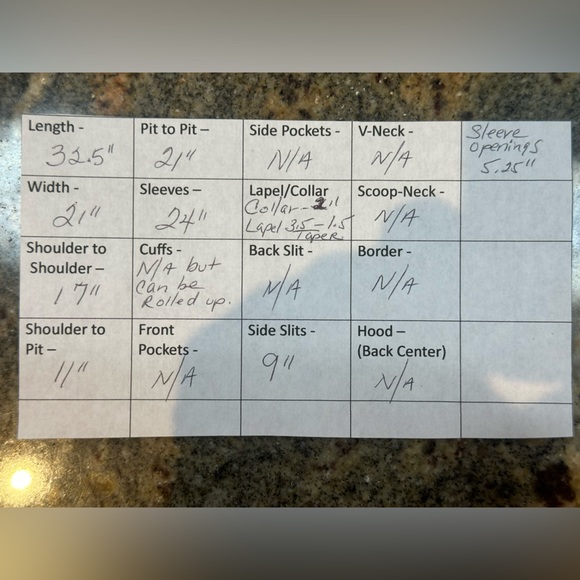 Length -
32.5"
Pit to Pit –
21"
Side Pockets -
N/A
V-Neck -
N/A
Sleeve
Openings
5.25"
Width -
21"
Sleeves –
24"
Lapel/Collar
Collar - 2"
Lapel 3.5 – 1.5
Taper
Scoop-Neck -
N/A
Shoulder to
Shoulder –
17"
Cuffs -
N/A but
Can be
Rolled up.
Back Slit -
N/A
Border -
N/A
Shoulder to
Pit –
11"
Front
Pockets -
N/A
Side Slits -
9"
Hood –
(Back Center)
N/A